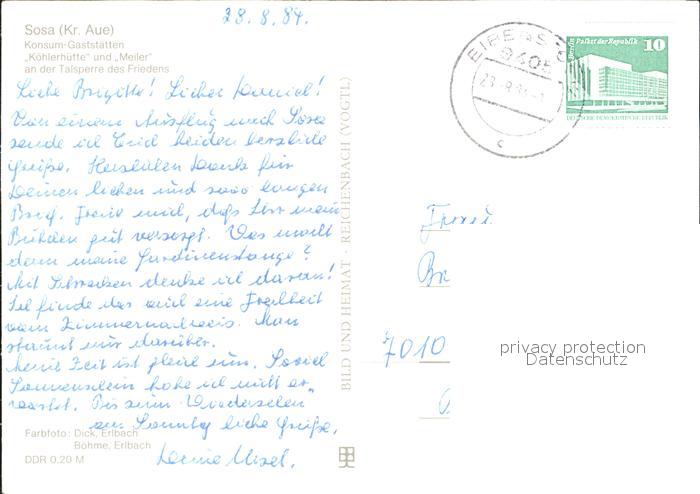 28.8.84.
Sosa (Kr. Aue)
Konsum-Gaststätten
„Köhlerhütte" und „Meiler"
an der Talsperre des Friedens
Liebe Brigitte! Lieber Daniel!
Von einem Ausflug nach Sosa
sende ich Euch beiden herzliche
Grüße. Herzlichen Dank für
Deinen lieben und sooo langen
Brief. Freue mich, daß Ihr mein
Bübchen gut versorgt. Was macht
denn meine Gardinenstange?
Mit Schrecken denke ich daran!
Ich finde das auch eine Frechheit
vom Zimmernachweis. Man
staunt nur darüber.
Meine Zeit ist gleich um. Soviel
Sonnenschein habe ich nicht er-
wartet. Bis zum Wiedersehen
am Sonntag liebe Grüße,
Deine Ursel.
Farbfoto: Dick, Erlbach
Böhme, Erlbach
DDR 0,20 M
BILD UND HEIMAT · REICHENBACH (VOGTL)
9405
Berlin Palast der Republik 10
DEUTSCHE DEMOKRATISCHE REPUBLIK
c
Br
7010
privacy protection
Datenschutz